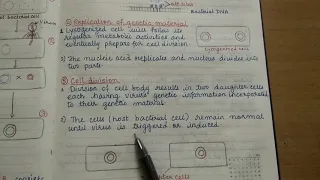 Bacterial DNA
② Replication of genetic material
1. Lysogenized cell
regular metabolic activities and
eventually prepare for cell division
Lysogenized cell
2) The nucleic acid replicates and nucleus divides into
two parts.
③ Cell division
1. Division of cell body results in two daughter cells
each having virus genetic information incorporated
to their genetic material.
2) The cells (host bacterial cell) remain normal
until virus is triggered or induced.
Cells